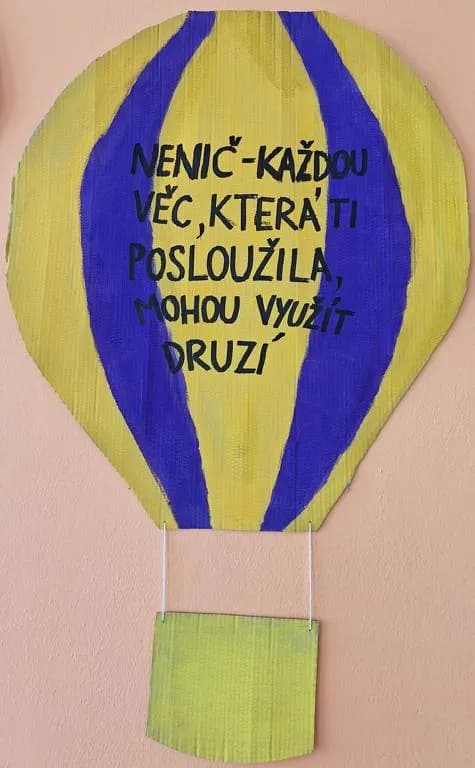 NENIČ-KAŽDOU
VĚC, KTERÁ TI
POSLOUŽILA,
MOHOU VYUŽÍT
DRUZÍ